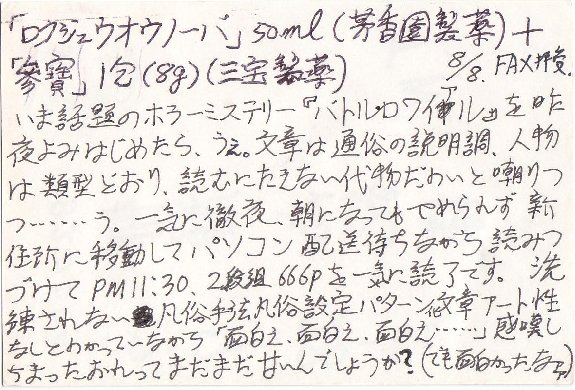 「ロクジュウオウノーバ」50ml(茅香園製薬)+
「參寶」1包(8g)(三宝製薬) 8/8. FAX拝受.
いま話題のホラーミステリー『バトル・ロワイアル』を昨
夜よみはじめたら、うえ。文章は通俗の説明調、人物
は類型どおり、読むにたえない代物だわいと嘲りつ
つ………う。一気に徹夜、朝になってもやめられず 新
住所に移動してパソコン配送待ちながら読みつ
づけてPM11:30、2段組666pを一気に読了です。洗
練されない 凡俗手法凡俗設定パターン文章アート性
なしとわかっていながら「面白え、面白え、面白え……」感嘆し
ちまったおれってまだまだ甘いんでしょうか?(でも面白かったなァ)